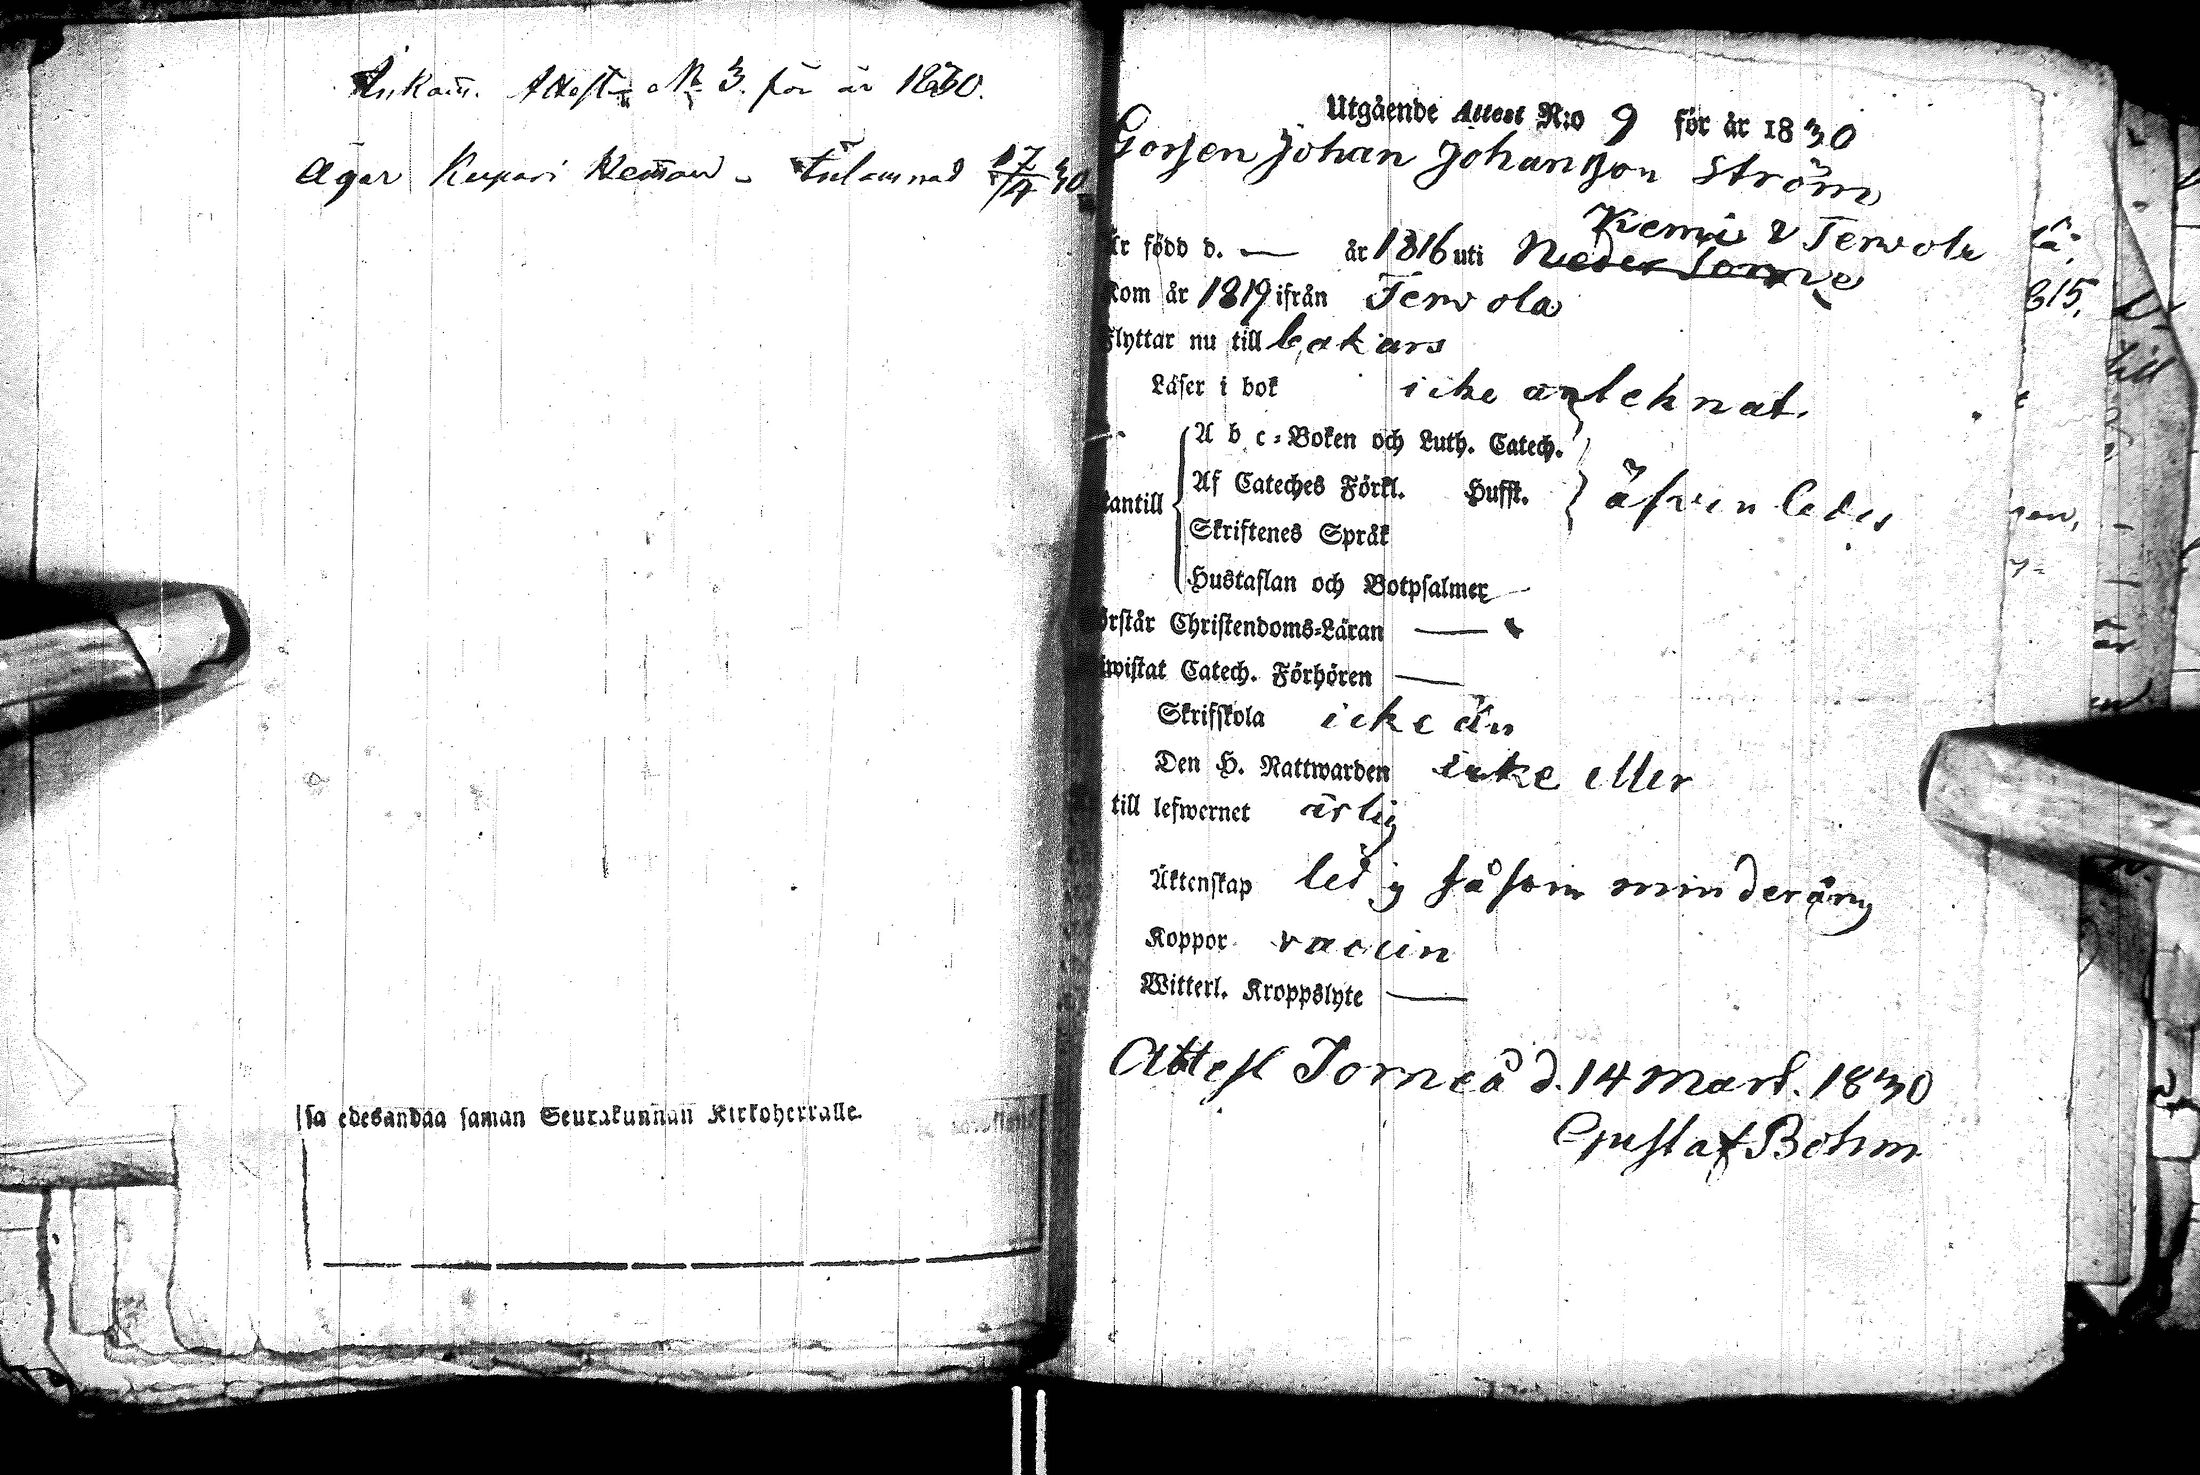 Ankom. Attest № 3. för år 1830.
äger Kupari Hemman - inlämnad 17/4 30
ssa edesandaa saman Seurakunnan Kirkoherralle.
Utgående Attest N:o 9 för år 1830
Gossen Johan Johansson Ström
Kemi & Tervola
Är född d. — år 1816 uti Neder Torne
Kom år 1819 ifrån Tervola
Flyttar nu till bakars
Läser i bok icke anteknat.
A b c-Boken och Luth. Catech.
Af Cateches Förkl. Hufft. äfvenledes
utantill
Skriftenes Språk
Hustaflan och Botpsalmer —
örstår Christendoms-Läran —
iwistat Catech. Förhören —
Skrifskola icke än
Den H. Nattwarden icke eller
till lefwernet ärlig
Äktenskap ledig såsom minderårig
Koppor vaccin
Witterl. Kroppslyte —
Attest Torneå d. 14 Mart. 1830
Gustaf Bohm
815.
till